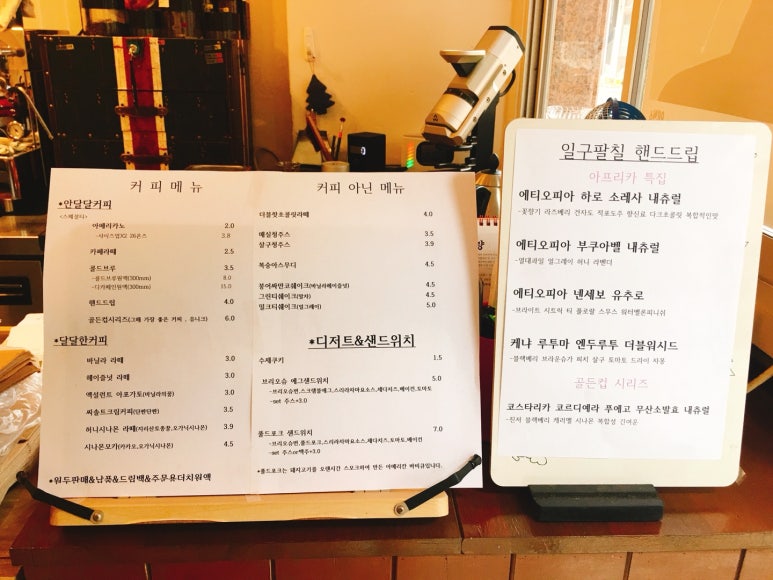 커피메뉴
*안달달커피
<스페셜티>
아메리카노 2.0
-사이즈업X2 26온즈 3.8
카페라떼 2.5
콜드브루 3.5
-콜드브루원액(300mm) 8.0
-디카페인원액(300mm) 15.0
핸드드립 4.0
골든컵시리즈(그해 가장 좋은 커피, 유니크) 6.0
*달달한커피
바닐라 라떼 3.0
헤이즐넛 라떼 3.0
액설런트 아포가토(바닐라의꿈) 3.0
씨솔트크림커피(단짠단짠) 3.5
허니시나몬 라떼(지리산토종꿀,오가닉시나몬) 3.9
시나몬모카(카카오,오가닉시나몬) 4.5
*원두판매&납품&드립백&주문용더치원액
커피 아닌 메뉴
더블핫초콜릿라떼 4.0
매실청주스 3.5
살구청주스 3.9
복숭아스무디 4.5
붕어싸만코쉐이크(바닐라헤이즐넛) 4.5
그린티쉐이크(말차) 4.5
밀크티쉐이크(얼그레이) 5.0
*디저트&샌드위치
수제쿠키 1.5
브리오슈 에그샌드위치 5.0
-브리오슈번,스크램블에그,스리라차마요소스,체다치즈,베이컨,토마토
-set 주스+3.0
풀드포크 샌드위치 7.0
-브리오슈번,풀드포크,스리라차마요소스,체다치즈,토마토,베이컨
-set 주스or맥주+3.0
*풀드포크는 돼지고기를 오랜시간 스모크하여 만든 아메리칸 바비큐입니다.
일구팔칠 핸드드립
아프리카 특집
에티오피아 하로 소레사 내츄럴
-꽃향기 라즈베리 건자도 적포도주 향신료 다크초콜릿 복합적인맛
에티오피아 부쿠아벨 내츄럴
-열대과일 얼그레이 허니 라벤더
에티오피아 넨세보 유추로
-브라이트 시트릭 티 플로랄 스무스 워터멜론피니쉬
케냐 루투마 엔두루투 더블워시드
-블랙베리 브라운슈가 피치 살구 토마토 드라이 자몽
골든컵 시리즈
코스타리카 코르디예라 푸에고 무산소발효 내츄럴
-진저 블랙베리 캐러멜 시나몬 복합성 긴여운